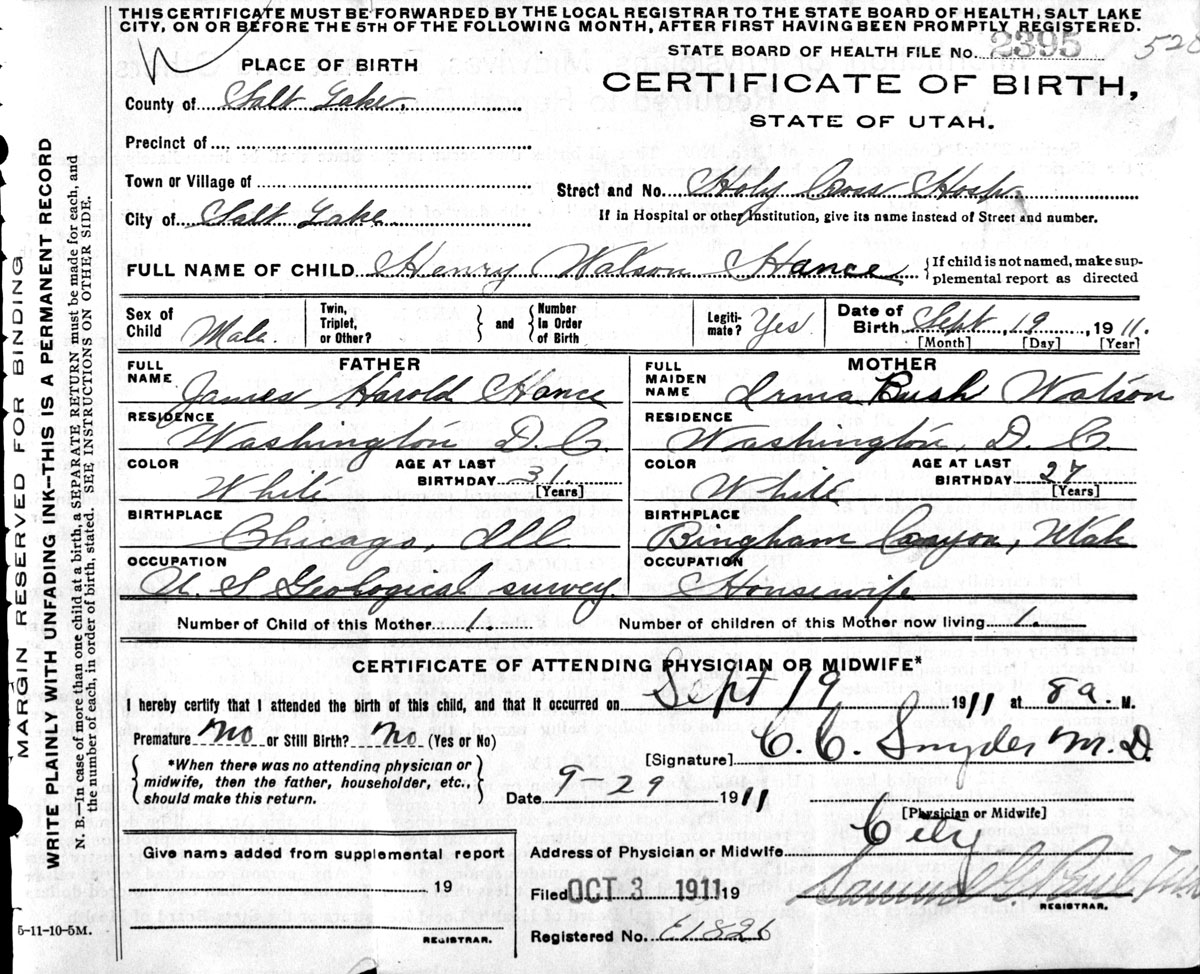 THIS CERTIFICATE MUST BE FORWARDED BY THE LOCAL REGISTRAR TO THE STATE BOARD OF HEALTH, SALT LAKE
CITY, ON OR BEFORE THE 5TH OF THE FOLLOWING MONTH, AFTER FIRST HAVING BEEN PROMPTLY REGISTERED.
STATE BOARD OF HEALTH FILE No. 2395
528
CERTIFICATE OF BIRTH,
STATE OF UTAH.
PLACE OF BIRTH
County of Salt Lake.
Precinct of
Town or Village of
Street and No. Holy Cross Hosp.
City of Salt Lake
If in Hospital or other Institution, give its name instead of Street and number.
FULL NAME OF CHILD Henry Watson Hance { If child is not named, make sup-
plemental report as directed
Sex of Child Male
Twin, Triplet, or Other? } and { Number In Order of Birth
Legiti-mate? Yes
Date of Birth Sept, 19, 1911.
[Month] [Day] [Year]
FATHER
FULL NAME James Harold Hance
RESIDENCE Washington D. C.
COLOR White AGE AT LAST BIRTHDAY 31. [Years]
BIRTHPLACE Chicago, Ill.
OCCUPATION U. S Geological survey.
MOTHER
FULL MAIDEN NAME Irma Bush Watson
RESIDENCE Washington, D. C.
COLOR White AGE AT LAST BIRTHDAY 27 [Years]
BIRTHPLACE Bingham Canyon, Utah
OCCUPATION Housewife
Number of Child of this Mother 1. Number of children of this Mother now living 1.
CERTIFICATE OF ATTENDING PHYSICIAN OR MIDWIFE*
I hereby certify that I attended the birth of this child, and that it occurred on Sept 19 1911 at 8a. M.
Premature no or Still Birth? no (Yes or No)
[Signature] C. C. Snyder M.D.
{ *When there was no attending physician or
midwife, then the father, householder, etc.,
should make this return. }
Date 9-29 1911
[Physician or Midwife]
Address of Physician or Midwife City
Give name added from supplemental report
19
REGISTRAR.
Filed OCT 3 1911 19
Samuel G.
REGISTRAR.
Registered No. E1826
5-11-10-5M.
MARGIN RESERVED FOR BINDING
WRITE PLAINLY WITH UNFADING INK—THIS IS A PERMANENT RECORD
N. B.—In case of more than one child at a birth, a SEPARATE RETURN must be made for each, and
the number of each, in order of birth, stated. SEE INSTRUCTIONS ON OTHER SIDE.